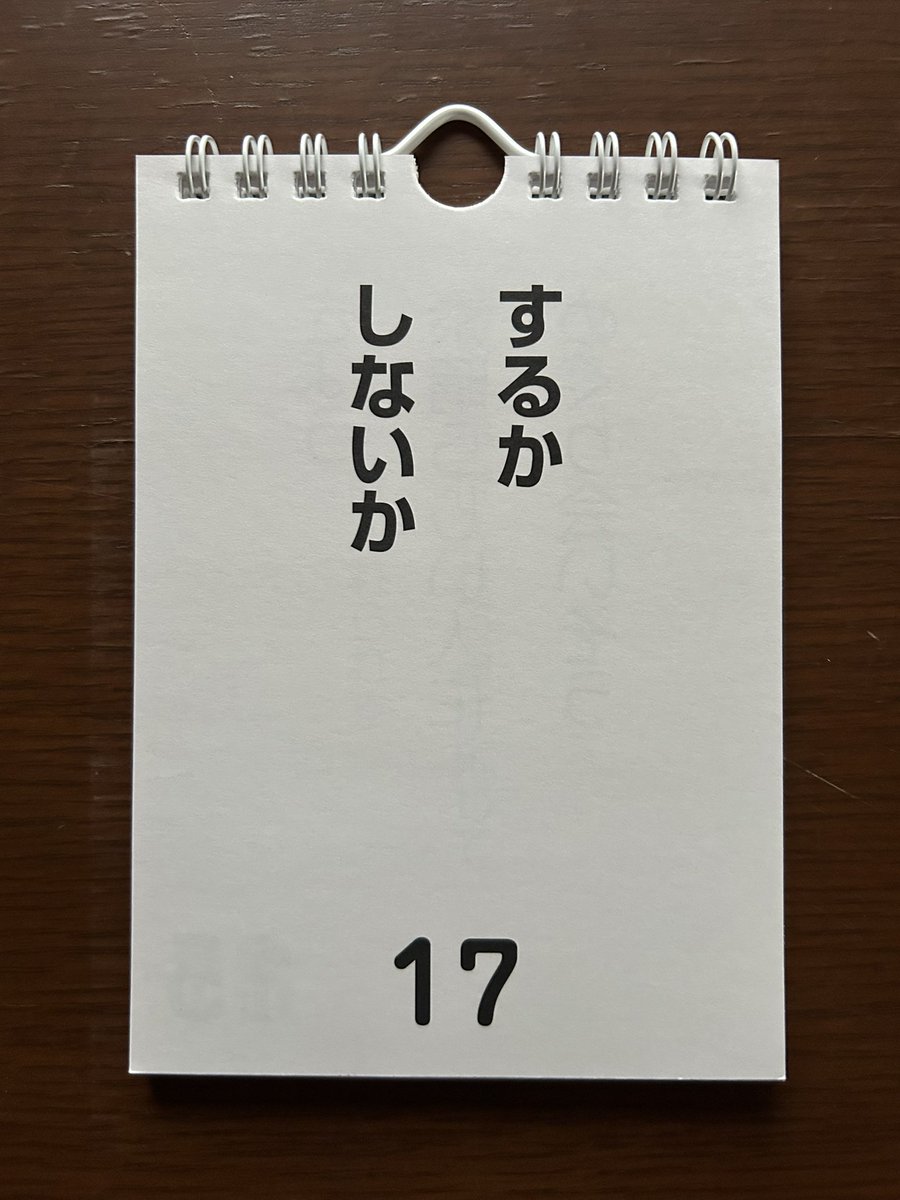 するか
しないか
17